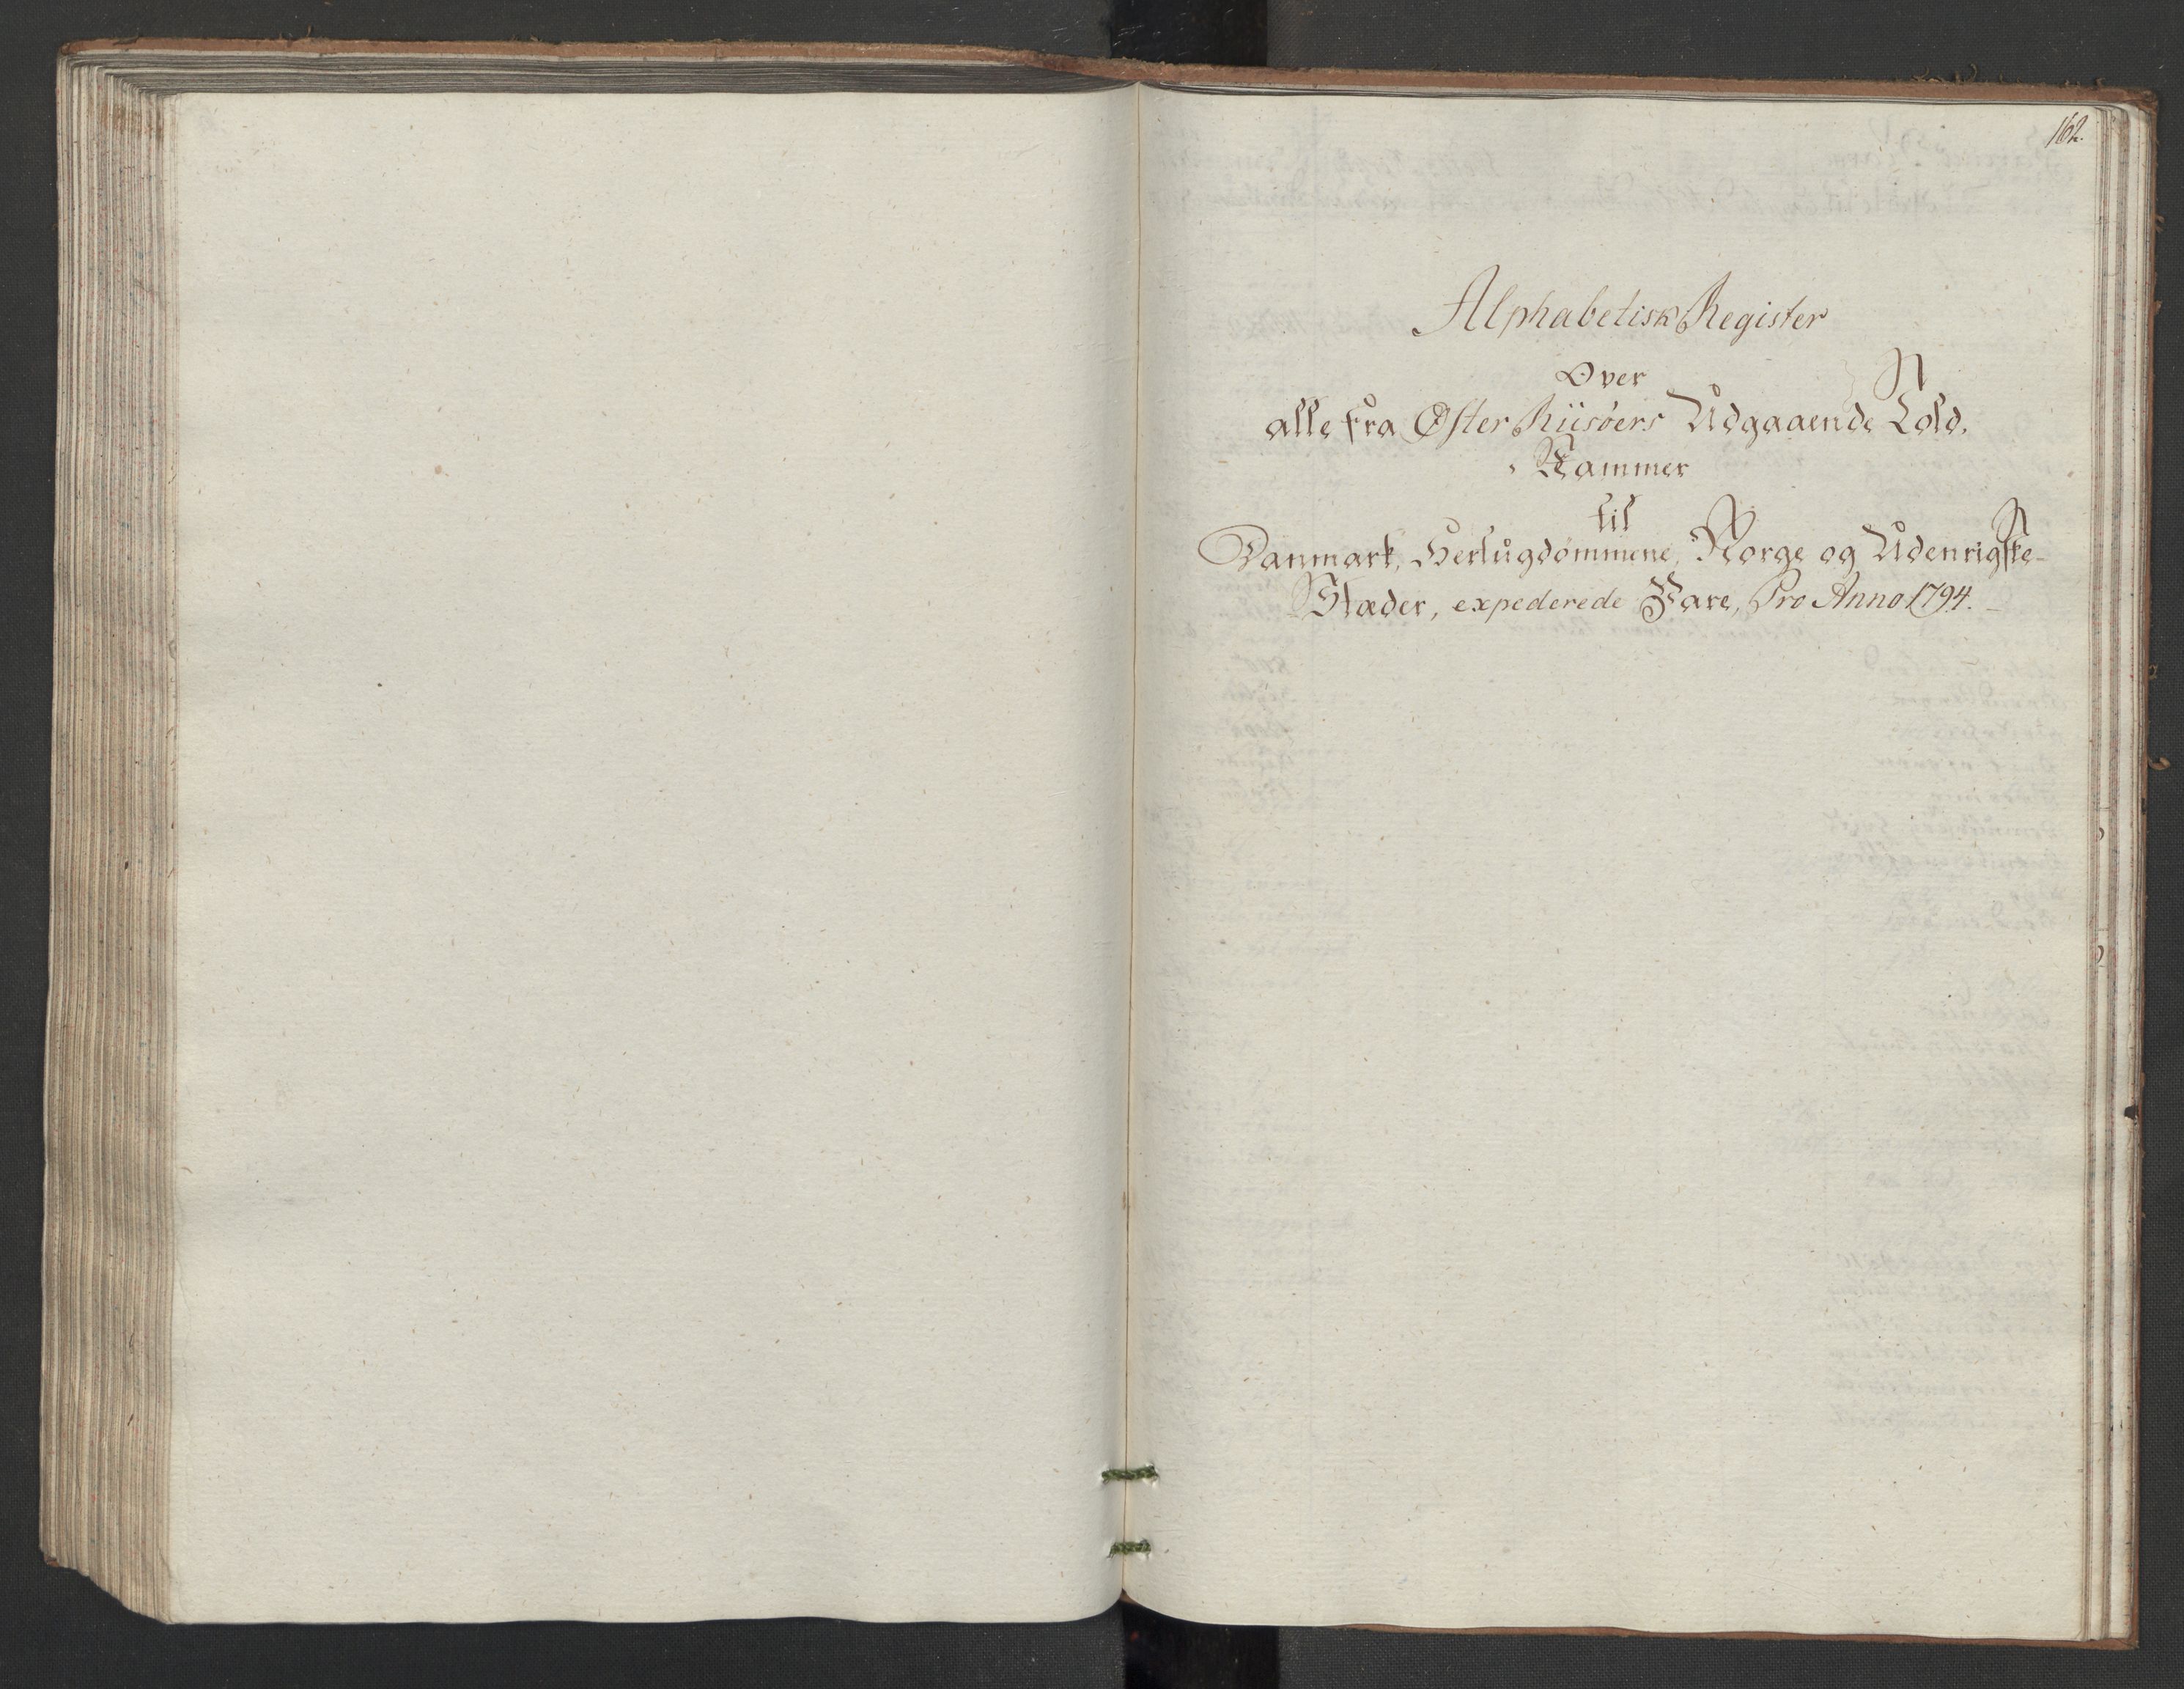 162.
Alphabetisk Register
Over
alle fra Øster Riisøers Udgaaende Told,
Kammer
til
Danmark, Hertugdommene, Norge og Udenrigske-
Stæder, expederede Vare, Pro Anno 1794.